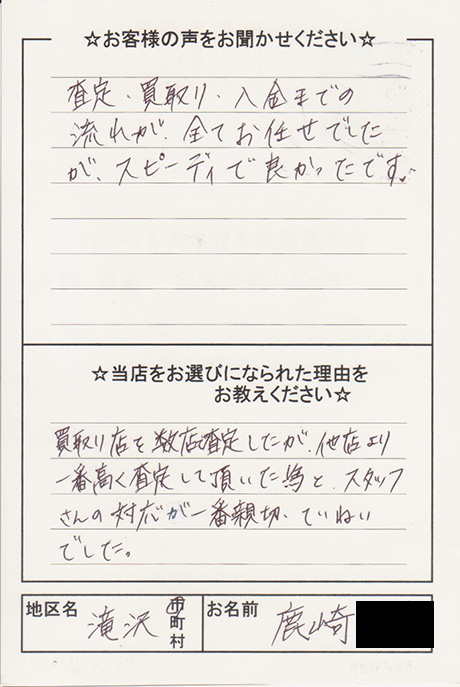 ☆お客様の声をお聞かせください☆
査定・買取り・入金までの
流れが、全てお任せでした
が、スピーディで良かったです。
☆当店をお選びになられた理由を
お教えください☆
買取り店を数店査定したが、他店より
一番高く査定して頂いた為と、スタッフ
さんの対応が一番親切、ていねい
でした。
地区名 滝沢 市町村 お名前 鹿崎